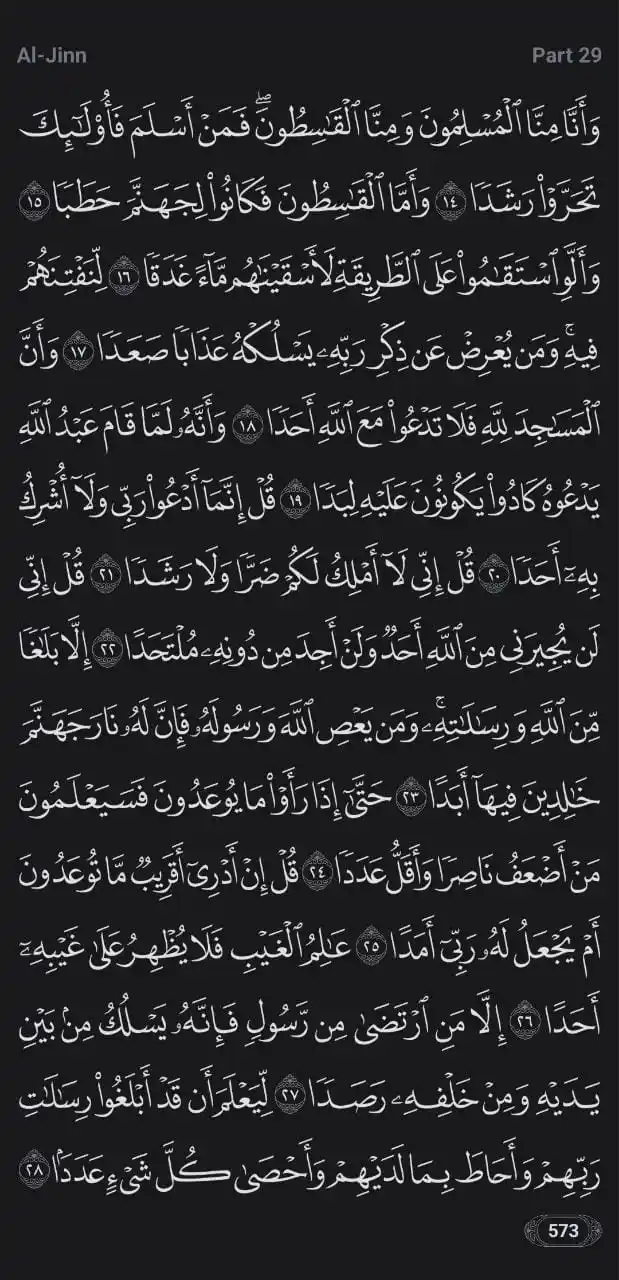 Al-Jinn
Part 29
وَأَنَّا مِنَّا ٱلْمُسْلِمُونَ وَمِنَّا ٱلْقَٰسِطُونَۖ فَمَنْ أَسْلَمَ فَأُو۟لَٰٓئِكَ
تَحَرَّوْا۟ رَشَدًا ١٤ وَأَمَّا ٱلْقَٰسِطُونَ فَكَانُوا۟ لِجَهَنَّمَ حَطَبًا ١٥
وَأَلَّوِ ٱسْتَقَٰمُوا۟ عَلَى ٱلطَّرِيقَةِ لَأَسْقَيْنَٰهُم مَّآءً غَدَقًا ١٦ لِّنَفْتِنَهُمْ
فِيهِۚ وَمَن يُعْرِضْ عَن ذِكْرِ رَبِّهِۦ يَسْلُكْهُ عَذَابًا صَعَدًا ١٧ وَأَنَّ
ٱلْمَسَٰجِدَ لِلَّهِ فَلَا تَدْعُوا۟ مَعَ ٱللَّهِ أَحَدًا ١٨ وَأَنَّهُۥ لَمَّا قَامَ عَبْدُ ٱللَّهِ
يَدْعُوهُ كَادُوا۟ يَكُونُونَ عَلَيْهِ لِبَدًا ١٩ قُلْ إِنَّمَآ أَدْعُوا۟ رَبِّى وَلَآ أُشْرِكُ
بِهِۦٓ أَحَدًا ٢٠ قُلْ إِنِّى لَآ أَمْلِكُ لَكُمْ ضَرًّا وَلَا رَشَدًا ٢١ قُلْ إِنِّى
لَن يُجِيرَنِى مِنَ ٱللَّهِ أَحَدٌ وَلَنْ أَجِدَ مِن دُونِهِۦ مُلْتَحَدًا ٢٢ إِلَّا بَلَٰغًا
مِّنَ ٱللَّهِ وَرِسَٰلَٰتِهِۦۚ وَمَن يَعْصِ ٱللَّهَ وَرَسُولَهُۥ فَإِنَّ لَهُۥ نَارَ جَهَنَّمَ
خَٰلِدِينَ فِيهَآ أَبَدًا ٢٣ حَتَّىٰٓ إِذَا رَأَوْا۟ مَا يُوعَدُونَ فَسَيَعْلَمُونَ
مَنْ أَضْعَفُ نَاصِرًا وَأَقَلُّ عَدَدًا ٢٤ قُلْ إِنْ أَدْرِىٓ أَقَرِيبٌ مَّا تُوعَدُونَ
أَمْ يَجْعَلُ لَهُۥ رَبِّىٓ أَمَدًا ٢٥ عَٰلِمُ ٱلْغَيْبِ فَلَا يُظْهِرُ عَلَىٰ غَيْبِهِۦٓ
أَحَدًا ٢٦ إِلَّا مَنِ ٱرْتَضَىٰ مِن رَّسُولٍ فَإِنَّهُۥ يَسْلُكُ مِنۢ بَيْنِ
يَدَيْهِ وَمِنْ خَلْفِهِۦ رَصَدًا ٢٧ لِّيَعْلَمَ أَن قَدْ أَبْلَغُوا۟ رِسَٰلَٰتِ
رَبِّهِمْ وَأَحَاطَ بِمَا لَدَيْهِمْ وَأَحْصَىٰ كُلَّ شَىْءٍ عَدَدًۢا ٢٨
573